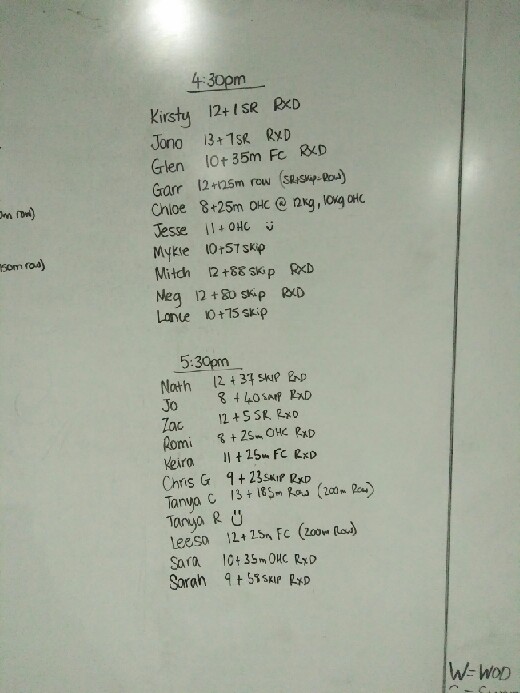 4:30pm
Kirsty 12+1 SR RXD
Jono 13+7SR RXD
Glen 10+35m FC RXD
Garr 12+125m row (SR+Skip=Row)
Chloe 8+25m OHC @ 12kg, 10kg OHC
Jesse 11+ OHC
Mykie 10+57 skip
Mitch 12+88 skip RXD
Meg 12+80 skip RXD
Lance 10+75 skip
5:30pm
Nath 12+37 SKIP RXD
Jo 8+40 SKIP RXD
Zac 12+5 SR RXD
Romi 8+25m OHC RXD
Keira 11+25m FC RXD
Chris G 9+23 SKIP RXD
Tanya C 13+185m Row (200m Row)
Tanya R
Leesa 12+25m FC (200m Row)
Sara 10+35m OHC RXD
Sarah 9+58 SKIP RXD
m row)
150m row)
W=WOD